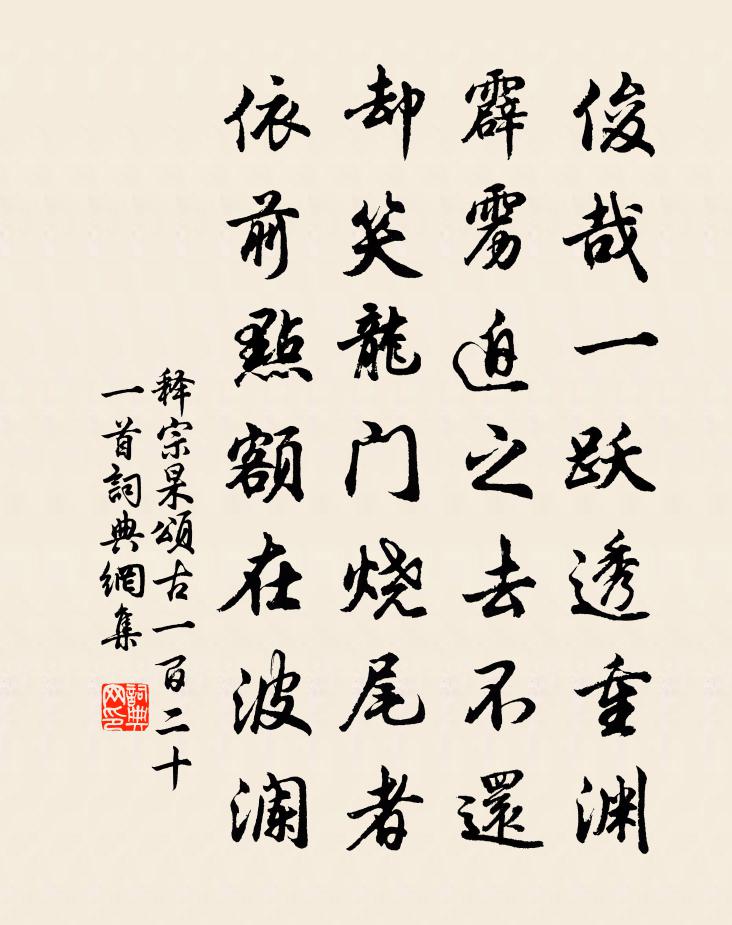 俊哉一跃透重渊
霹雳追之去不還
却笑龍门烧尾者
依前點額在波澜
释宗杲頌古一百二十
一首詞典網集
詞典
网印